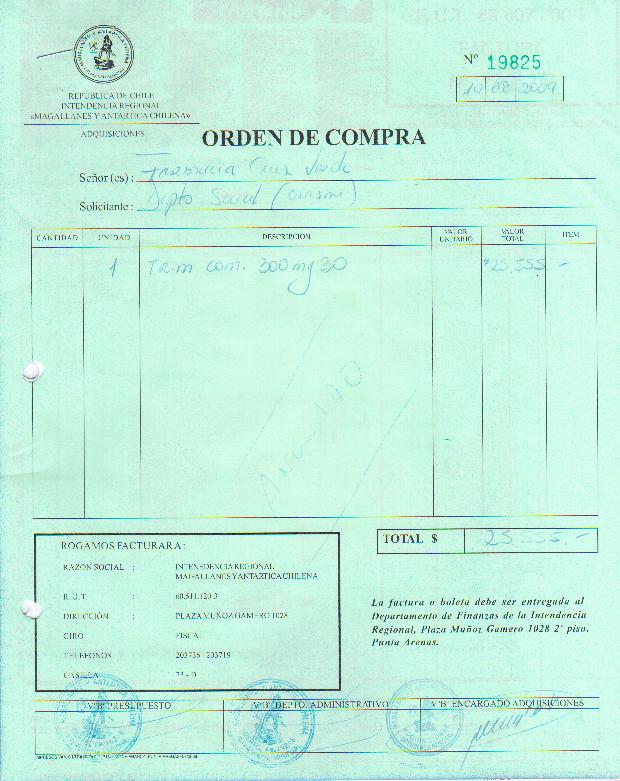 Nº 19825
10 08 2009
REPUBLICA DE CHILE
INTENDENCIA REGIONAL
«MAGALLANES Y ANTARTICA CHILENA»
ADQUISICIONES
ORDEN DE COMPRA
Señor (es) : Farmacia Cruz Verde
Solicitante : Depto Social
CANTIDAD UNIDAD DESCRIPCION VALOR UNITARIO VALOR TOTAL ITEM
1 Trim com. 300 mg 30 $25.555.-
ANULADO
TOTAL $ 25.555.-
ROGAMOS FACTURAR A :
RAZON SOCIAL : INTENEDENCIA REGIONAL
MAGALLANES Y ANTARTICA CHILENA
R.U.T. : 60.511.120-3
DIRECCIÓN : PLAZA MUÑOZ GAMERO 1028
GIRO FISCAL
TELEFONOS 203736 - 203719
CASILLA
La factura o boleta debe ser entregada al
Departamento de Finanzas de la Intendencia
Regional, Plaza Muñoz Gamero 1028 2º piso,
Punta Arenas.
VºBº PRESUPUESTO VºBº DEPTO. ADMINISTRATIVO VºBº ENCARGADO ADQUISICIONES